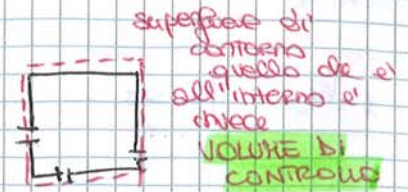 superficie di
contorno
quello che e'
all'interno e'
invece
VOLUME DI
CONTROLLO